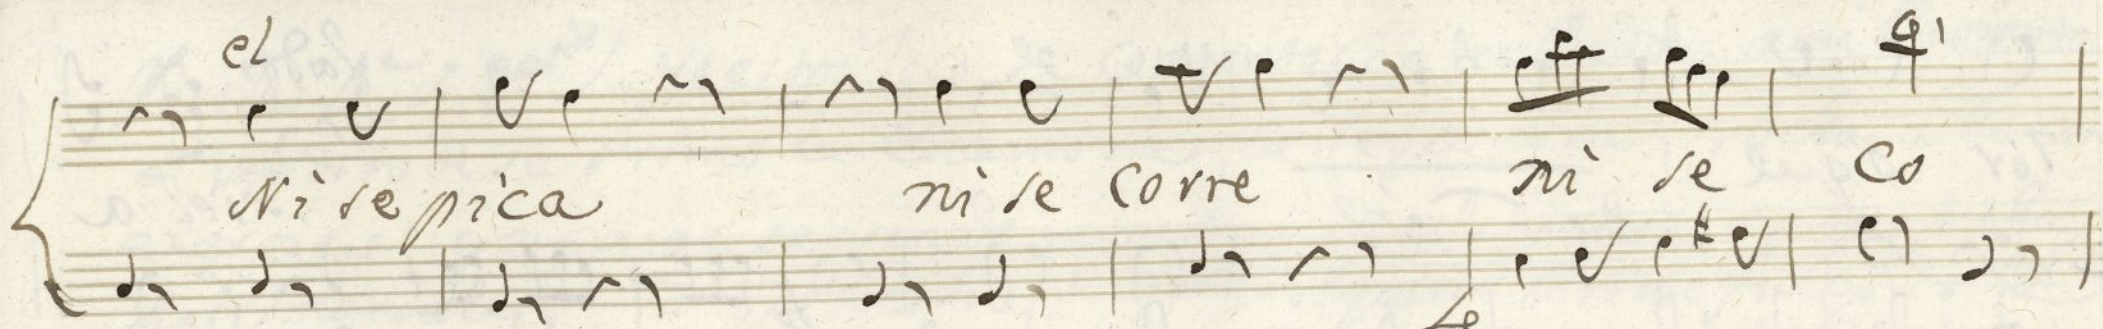 el
Ni se pica ni se Corre ni se Co